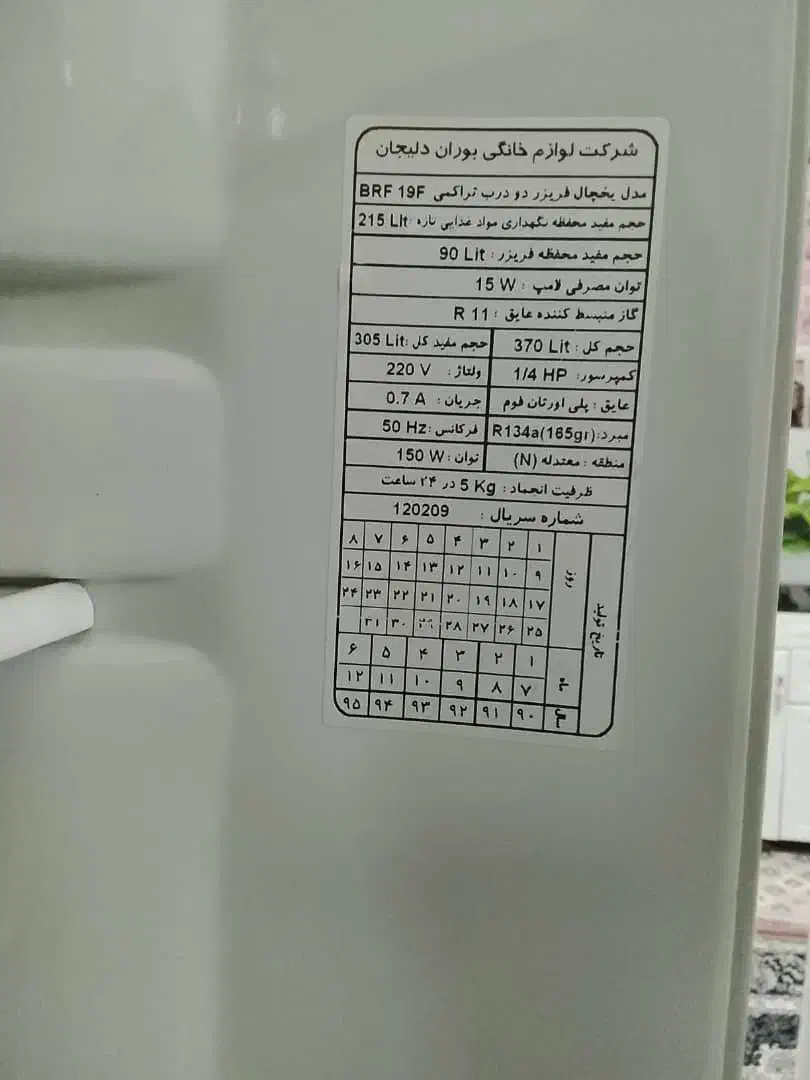 شرکت لوازم خانگی بوران دلیجان
مدل یخچال فریزر دو درب تراکمی BRF 19F
حجم مفید محفظه نگهداری مواد غذایی تازه : 215 Lit
حجم مفید محفظه فریزر : 90 Lit
توان مصرفی لامپ : 15 W
گاز منبسط کننده عایق : R 11
حجم کل : 370 Lit حجم مفید کل: 305 Lit
کمپرسور: 1/4 HP ولتاژ: 220 V
عایق : پلی اورتان فوم جریان: 0.7 A
مبرد: R134a(165gr) فرکانس: 50 Hz
منطقه : معتدله (N) توان: 150 W
ظرفیت انجماد: 5 Kg در ۲۴ ساعت
شماره سریال : 120209
تاریخ تولید
روز
۱ ۲ ۳ ۴ ۵ ۶ ۷ ۸
۹ ۱۰ ۱۱ ۱۲ ۱۳ ۱۴ ۱۵ ۱۶
۱۷ ۱۸ ۱۹ ۲۰ ۲۱ ۲۲ ۲۳ ۲۴
۲۵ ۲۶ ۲۷ ۲۸ ۲۹ ۳۰ ۳۱
ماه
۱ ۲ ۳ ۴ ۵ ۶
۷ ۸ ۹ ۱۰ ۱۱ ۱۲
سال
۹۰ ۹۱ ۹۲ ۹۳ ۹۴ ۹۵